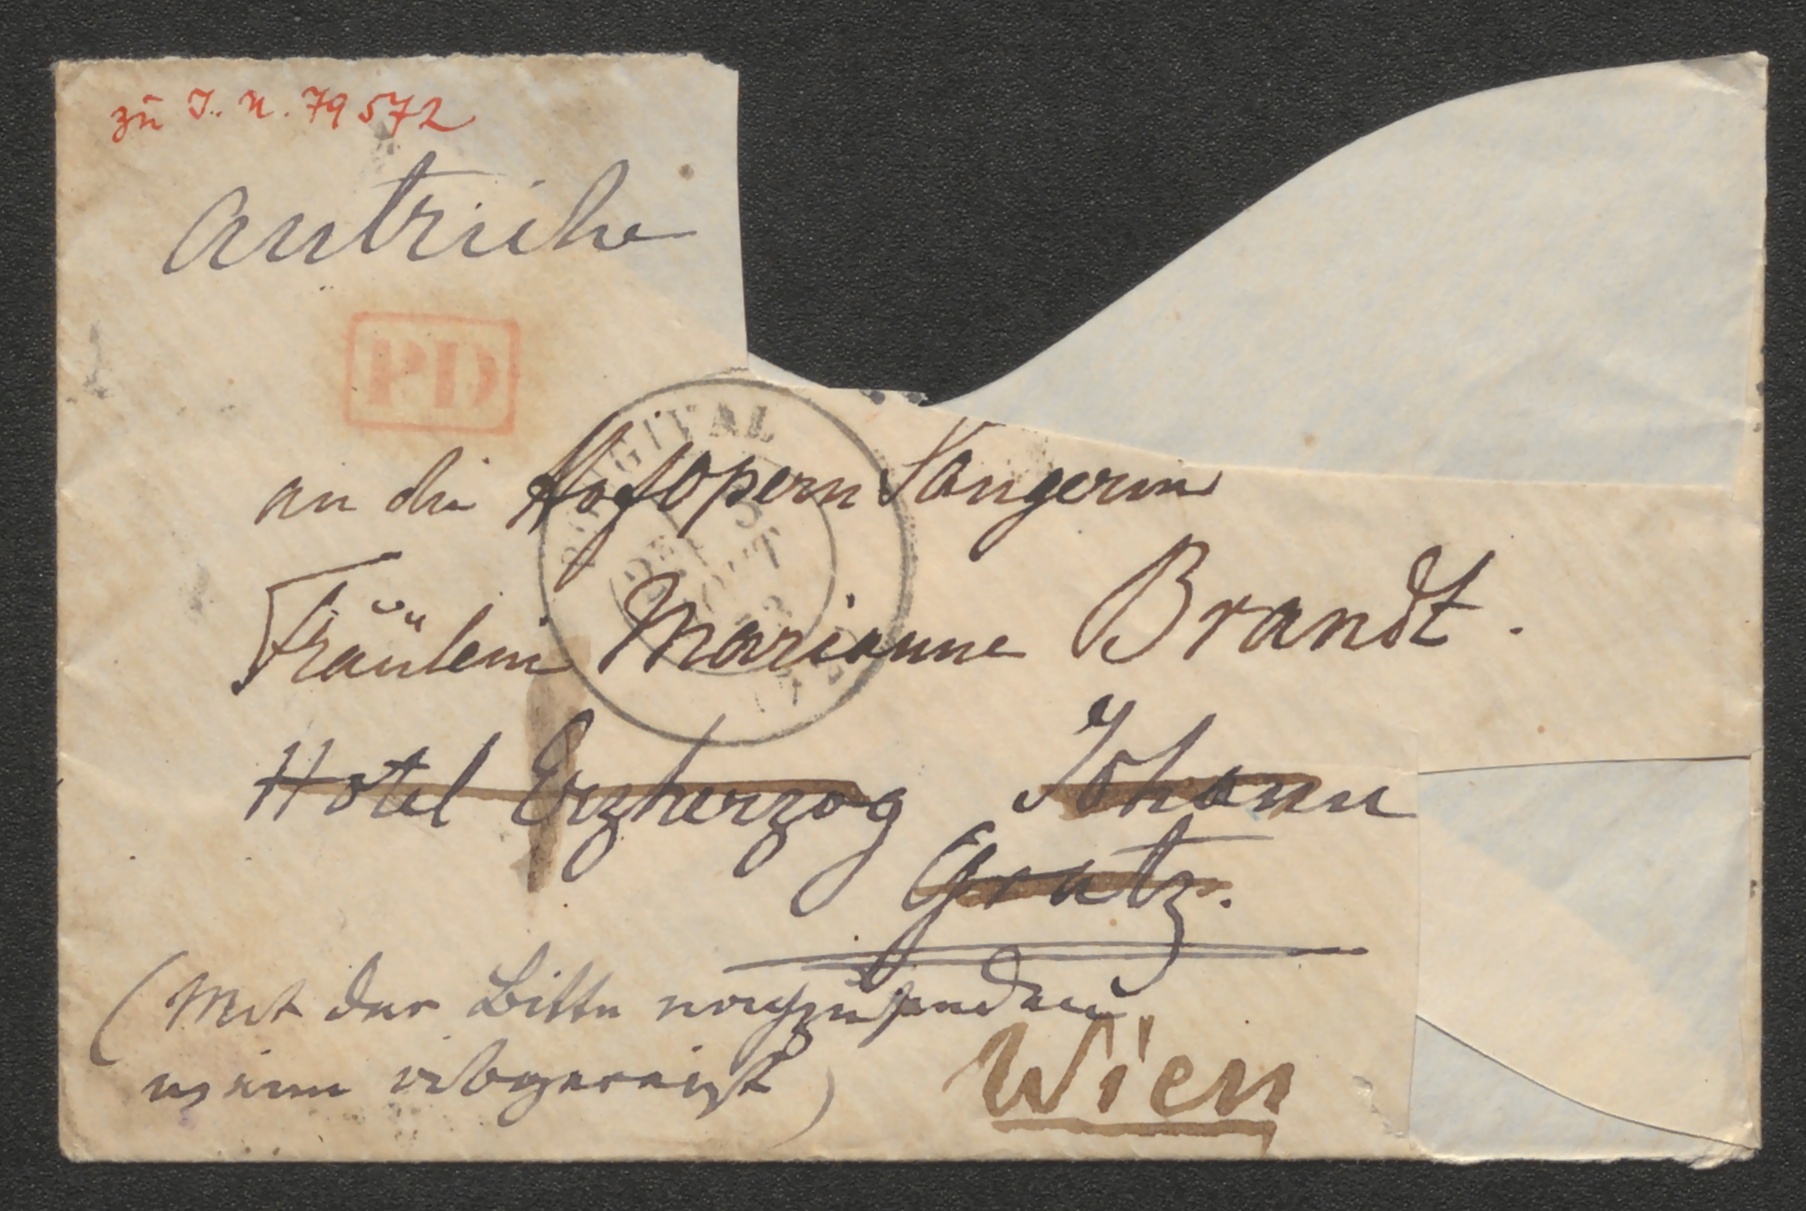 zu I. N. 79572
Autriche
PD
BOUGIVAL
an die Hofopern Sängerin
Fräulein Marianne Brandt.
Hotel Erzherzog Johann
Gratz.
(Mit der Bitte nachzusenden
wenn abgereist)
Wien